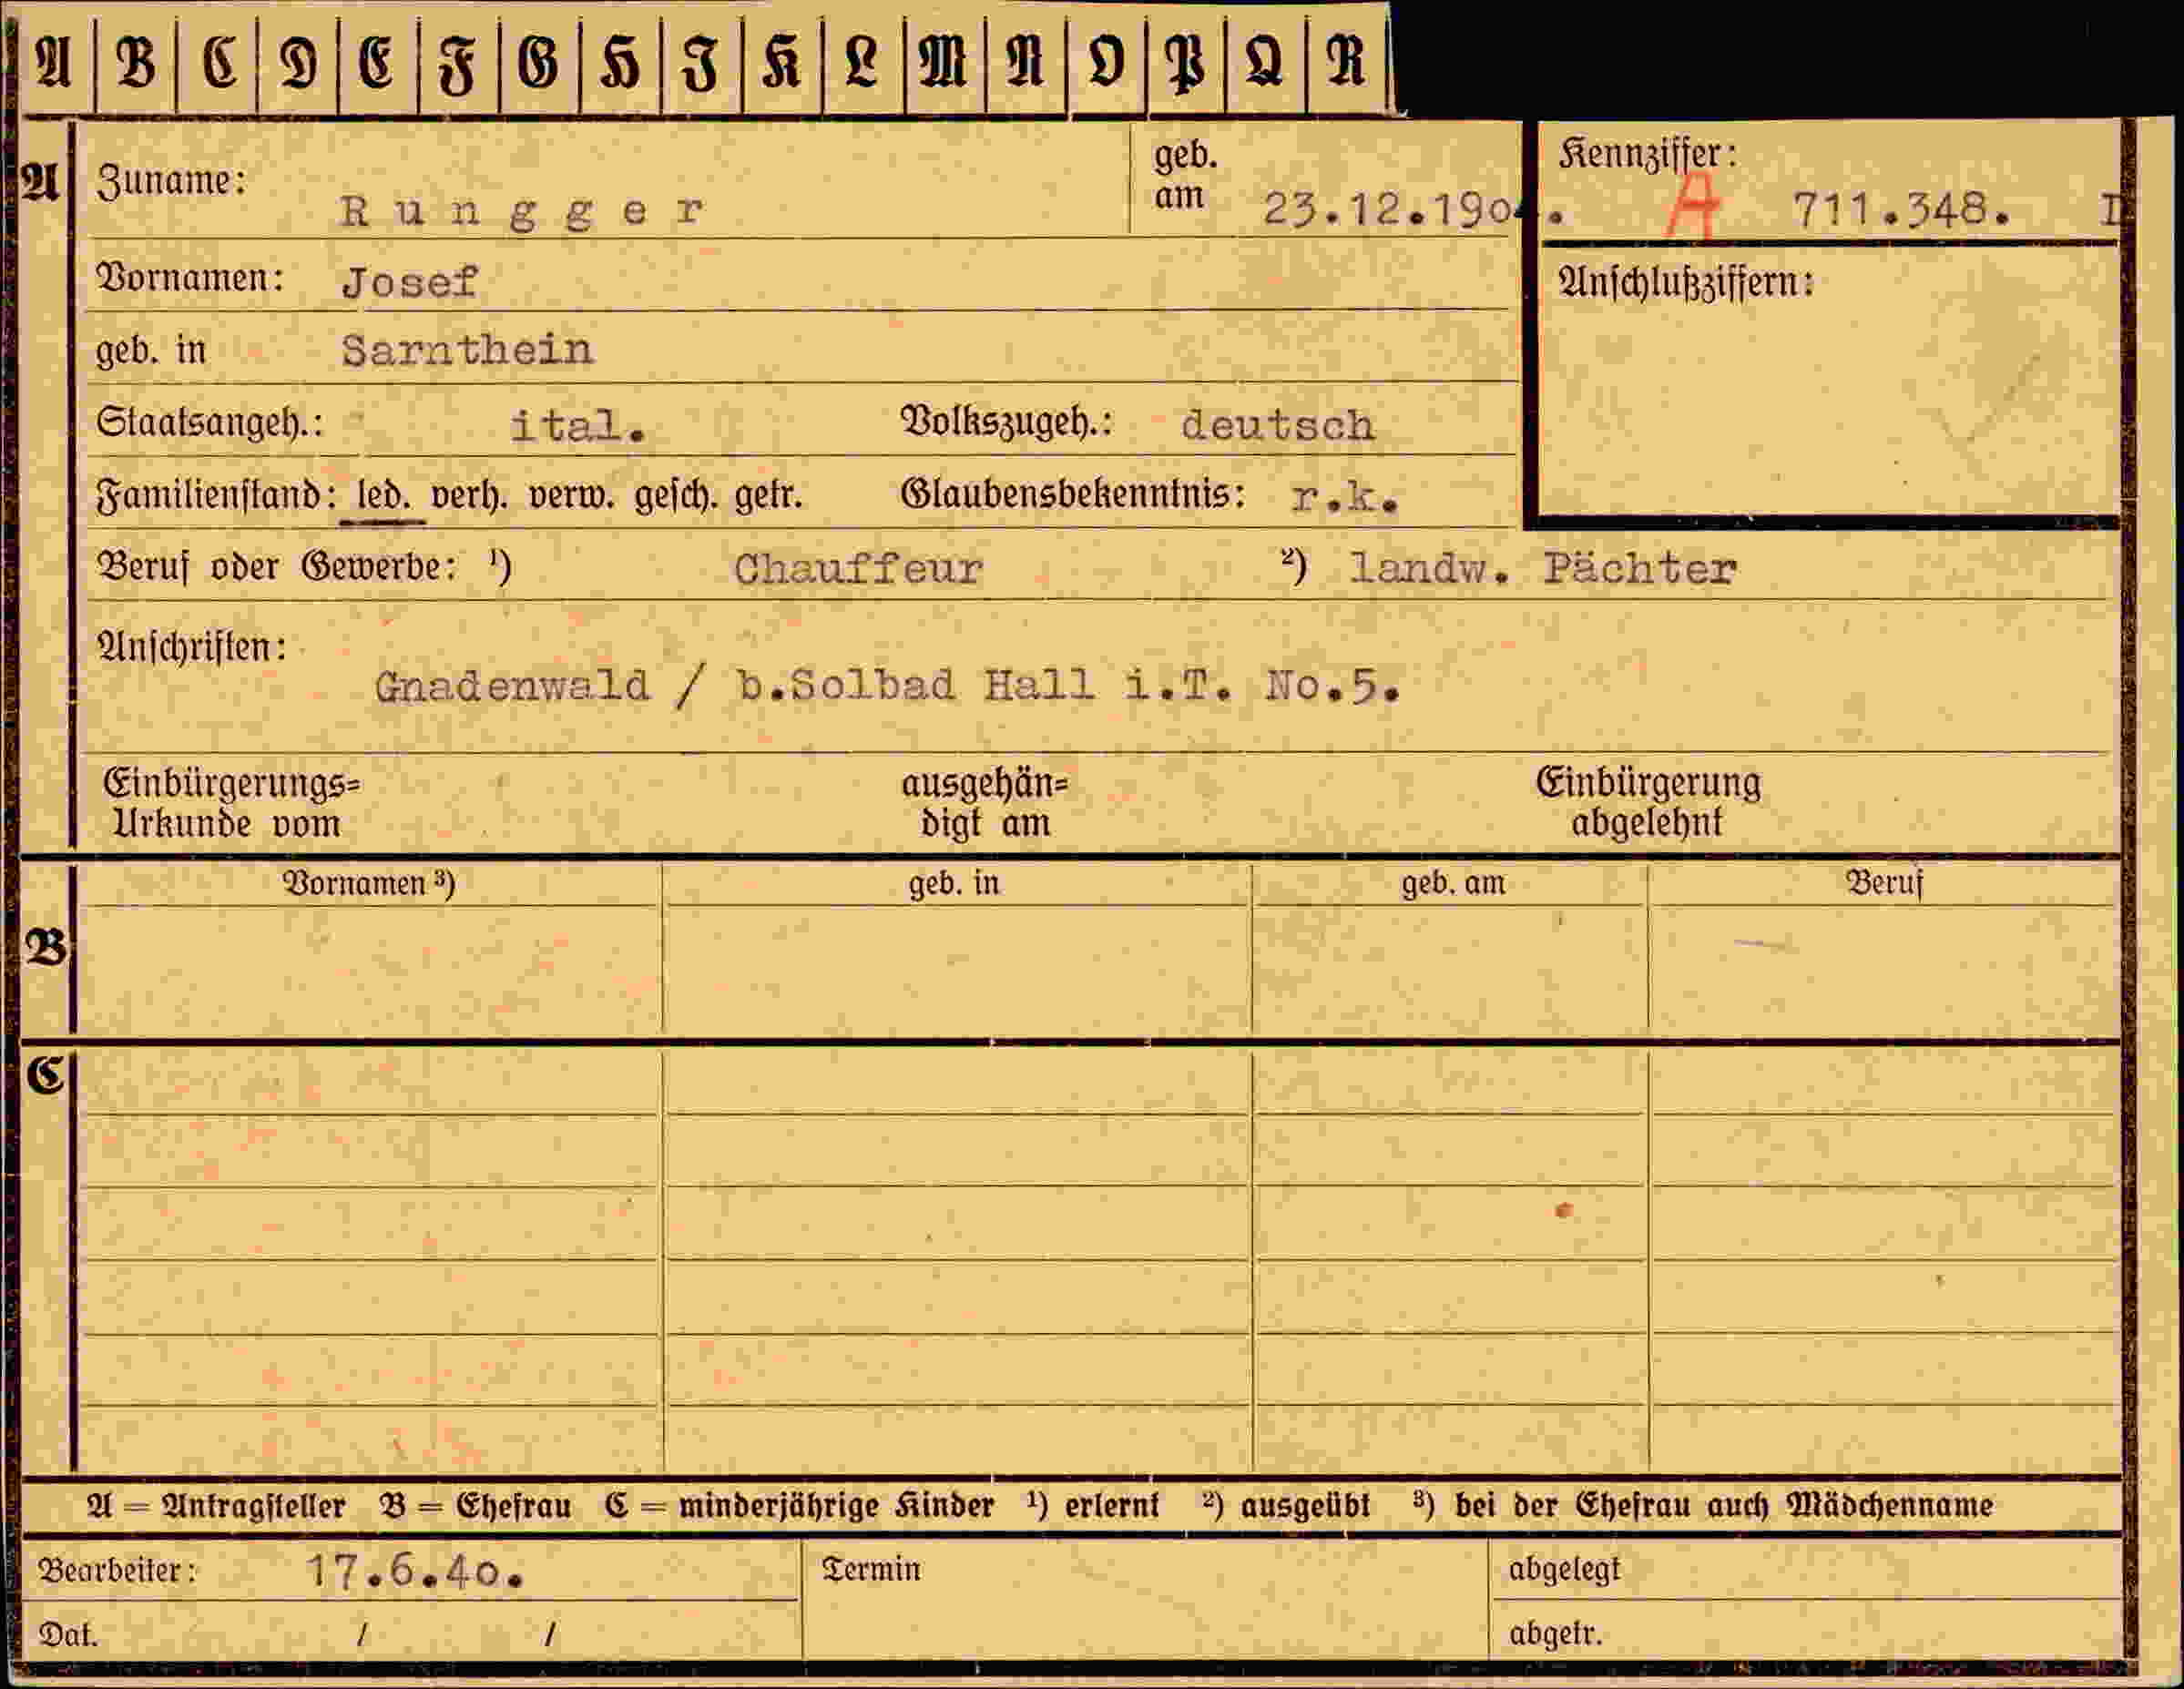 A B C D E F G H I K L M N O P Q R
A Zuname: Rungger geb. am 23.12.190 . Kennziffer: A 711.348. I
Vornamen: Josef Anschlußziffern:
geb. in Sarnthein
Staatsangeh.: ital. Volkszugeh.: deutsch
Familienstand: led. verh. verw. gesch. getr. Glaubensbekenntnis: r.k.
Beruf oder Gewerbe: ¹) Chauffeur ²) landw. Pächter
Anschriften:
Gnadenwald / b.Solbad Hall i.T. No.5.
Einbürgerungs= ausgehän= Einbürgerung
Urkunde vom digt am abgelehnt
Vornamen ³) geb. in geb. am Beruf
B
C
A = Antragsteller B = Ehefrau C = minderjährige Kinder ¹) erlernt ²) ausgeübt ³) bei der Ehefrau auch Mädchenname
Bearbeiter: 17.6.4o. Termin abgelegt
Dat. / / abgetr.